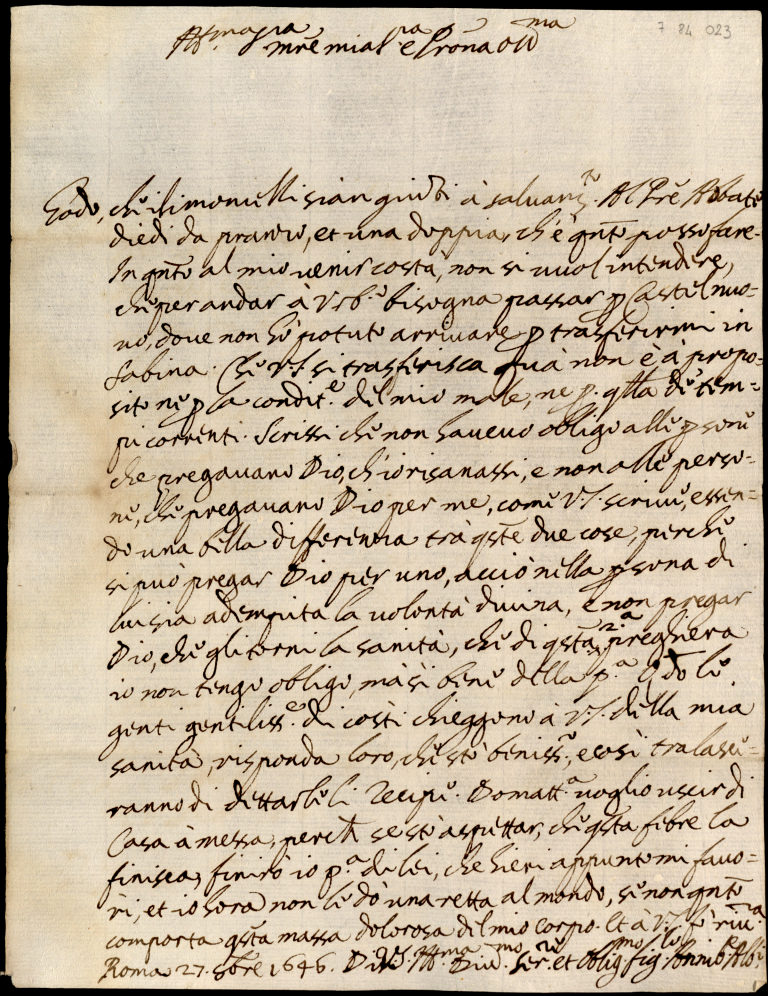 7 84 023
Ill.ma Sig.ra
mrẽ mia Sig.ra e Prona oss.ma
Godo, che i limoncelli sian giuti à saluam.to Al Prẽ Abbate
diedi da pranzo, et una doppia, ch'è qnto posso fare.
In qnto al mio uenir costà, non si uuol intendere,
che per andar à Urb.o bisogna passar p Castel nuo=
uo, doue non hò potuto arriuare p trasferirmi in
Sabina. Che V.S. si trasferisca quà non è à propo=
sito ne p la condit.e del mio male, ne p. qlla de tem=
pi correnti. Scrissi che non haueuo obligo alle psone
che pregauano Dio, ch'io risanassi, e non alle perso=
ne, che pregauano Dio per me, come V.S. scriue, essen=
do una bella differenza trà qste due cose, perche
si può pregar Dio per uno, acciò nella psona di
lui sia adempita la uolontà diuina, e non pregar
Dio, che gli torni la sanità, che di qsta 2.a preghiera
io non tengo obligo, mà sì bene della p.a Qdo le
genti gentiliss.e di costì chieggono à V.S. della mia
sanità, risponda loro, che stò beniss.o, e così tralasce=
ranno di dettarle li Recipe. Domatt.a uoglio uscir di
Casa à messa, perch se stò aspettar, che qsta febre la
finisca, finirò io p.a di lei, che hieri appunto mi fauo=
rì, et io hora non le dò una retta al mondo, se non qnto
comporta qsta massa dolorosa del mio corpo. Et à V.S. fò riu.a
Roma 27. 8bre 1646. Di V.S. Ill.ma Diu.mo Ser.re et oblig.mo fig.lo Annib.e Alb.i